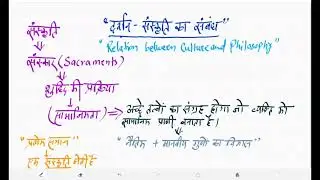 संस्कृति
"दर्शन - संस्कृति का संबंध"
"Relation between Culture and Philosophy"
संस्कार (Sacraments)
शुद्धि की प्रक्रिया
(सामाजिकता) → अच्छे तत्वों का संग्रह होगा जो व्यक्ति को
सामाजिक प्राणी बनाता है।
"प्रत्येक समाज"
"नैतिक + मानवीय गुणों का विकास"
एक संस्कृति